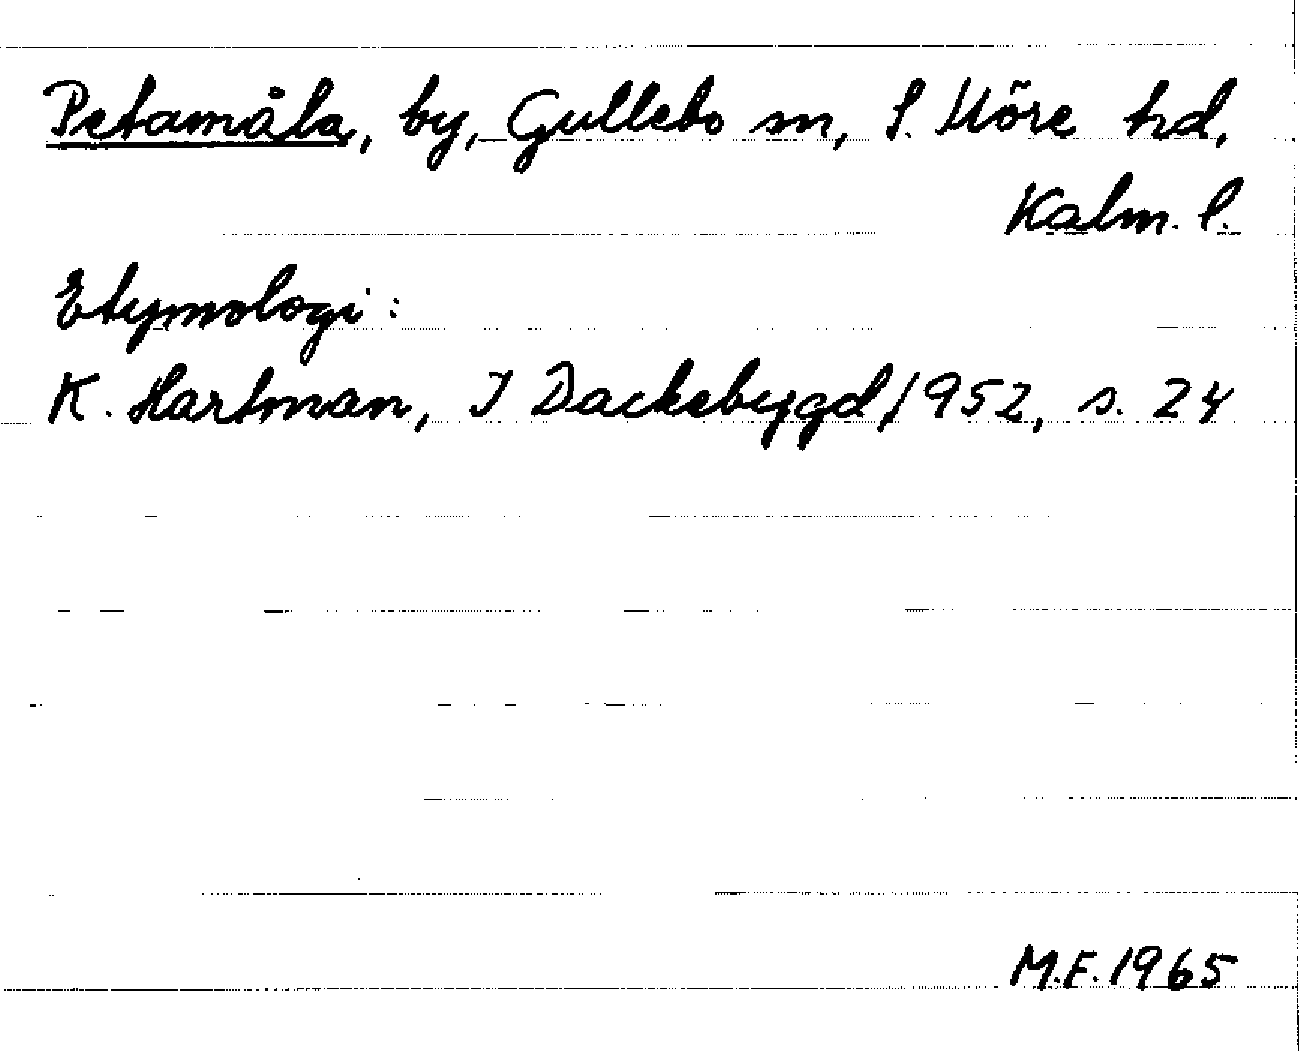 Petamåla, by, Gullebo sn, S. Möre hd,
Kalm. l.
Etymologi:
K. Hartman, I Dackebygd, 1952, s. 24
M.F. 1965